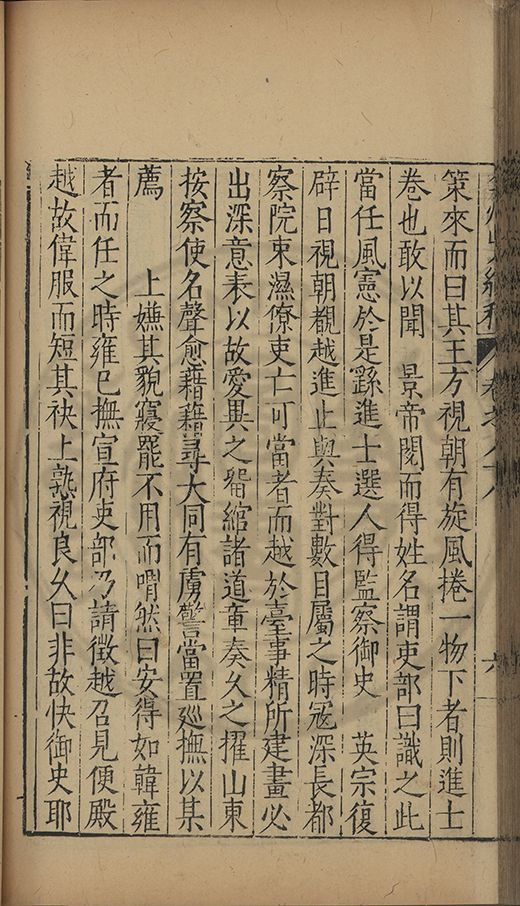 策來而曰其王方視朝有旋風捲一物下者則進士
卷也敢以聞　景帝閱而得姓名謂吏部曰識之此
當任風憲於是繇進士選人得監察御史　英宗復
辟日視朝覩越進止與奏對數目屬之時寇深長都
察院束濕僚吏亡可當者而越於臺事精所建畫必
出深意表以故愛異之畱綰諸道章奏久之擢山東
按察使名聲愈藉藉尋大同有虜警當置廵撫以某
薦　上嫌其貌寢罷不用而喟然曰安得如韓雍
者而任之時雍已撫宣府吏部乃請徵越召見便殿
越故偉服而短其袂上熟視良久曰非故快御史耶